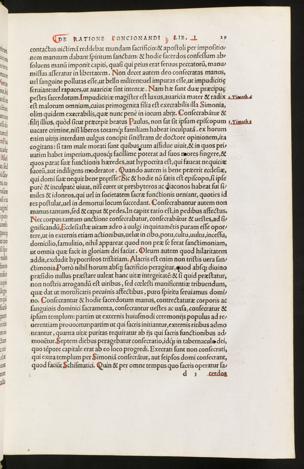 DE RATIONE CONCIONANDI LIB. I 29
contactus uictima reddebat mundam sacrificii: & apostoli per impositio-
nem manuum dabant spiritum sanctum: & hodie sacerdos confessum ab-
soluens manū imponit capiti, quasi qui prius erat seruus peccatorū, manu-
missus asseratur in libertatem. Non decet autem deo consecratas manus,
uel sanguine pollutas esse, ut bello militentuel impuras esse, ut impudicitiæ
seruiant uel rapaces, ut auaritiæ sint intentæ. Nam hæ sunt duæ præcipuæ
pestes sacerdotum. Impudicitiæ magister est luxus, auaricia mater & radix
est malorum omnium, cuius primogenita filia est execrabilis illa Simonia,
olim quidem execrabilis, quæ nunc penè in iocum abijt. Consecrabatur &
1.Timoth.6
filij illius, quod sicut præcipit beatus Paulus, non sat sit ipsum episcopum
1.Timoth.3
uacare crimine, nisi liberos totamq; familiam habeat inculpatā. ex horum
enim uitijs interdum uulgus concipit sinistram de doctore opinionem, ita
cogitans: si tam male morati sunt quibuscum assiduè uiuit, & in quos pri-
uatim habet imperium, quos facillime poterat ad suos mores fingere, &
quos paratè sunt functionis hæredes, aut hypocrita est, qui faueat nequitiæ
suorū, aut indignus moderator. Quando autem is bene præerit ecclesiæ,
qui domi suæ nequit bene præesse: Sic & hodie nō satis est episcopo, si ipse
purè & inculpatè uiuat, nisi curet ut presbyteros ac diaconos habeat sui si-
miles & idoneos, qui uel in societatem sacræ functionis ueniant, quoties id
res postulat, uel in demortui locum succedant. Consecrabantur autem non
manus tantum, sed & caput & pedes. In capite ratio est, in pedibus affectus.
Nec corpus tantum unctione consecrabatur, consecrabātur & uestes, ad si-
gnificandū, Ecclesiastæ uitam adeo à uulgi inquinamētis puram esse opor-
tere, ut in externis etiam actionibus, uelut in cibo, potu, cultu, incessu,
domicilio, famulitio, nihil appareat quod non præ se ferat sanctimoniam,
ut omnia quæ facit in gloriam dei faciat. Oleum autem quod hilaritatem
addit, excludit hypocriseos tristitiam. Alacris est enim non tristis uera san-
ctimonia. Porrò nihil horum absq; sacrificio peragitur, quod absq; diuino
præsidio nullus præstare ualeat hanc uitæ integritatē: & si quid præstatur,
non nostris arrogandū est uiribus, sed cœlesti munificentiæ tribuendum,
quæ dat ut mortificatis prauatis affectibus, puro spiritu seruiamus domi-
no. Consecrantur & hodie sacerdotum manus, contrectaturæ corporis ac
sanguinis dominici sacramenta, consecrantur uestes ac uasa, consecratur &
ipsum templum: partim ut externis huiusmodi ceremonijs populus ad re-
uerentiam prouocetur: partim ut qui sacris initiantur, externis ritibus admo-
neantur, quanta uitæ puritas requiratur ab ijs qui sacris functionibus ad-
mouētur. Septem diebus peragebatur consecratio, idq; in tabernaculo dei,
quo tempore capitale erat ab eo loco progredi. Execrati sunt non consecrati,
qui extra templum per Simonia consecrātur, aut seipsos domi consecrant,
quod faciūt Schismatici. Quin & per omne tempus quo sacris operatur sa-
d 3 cerdos